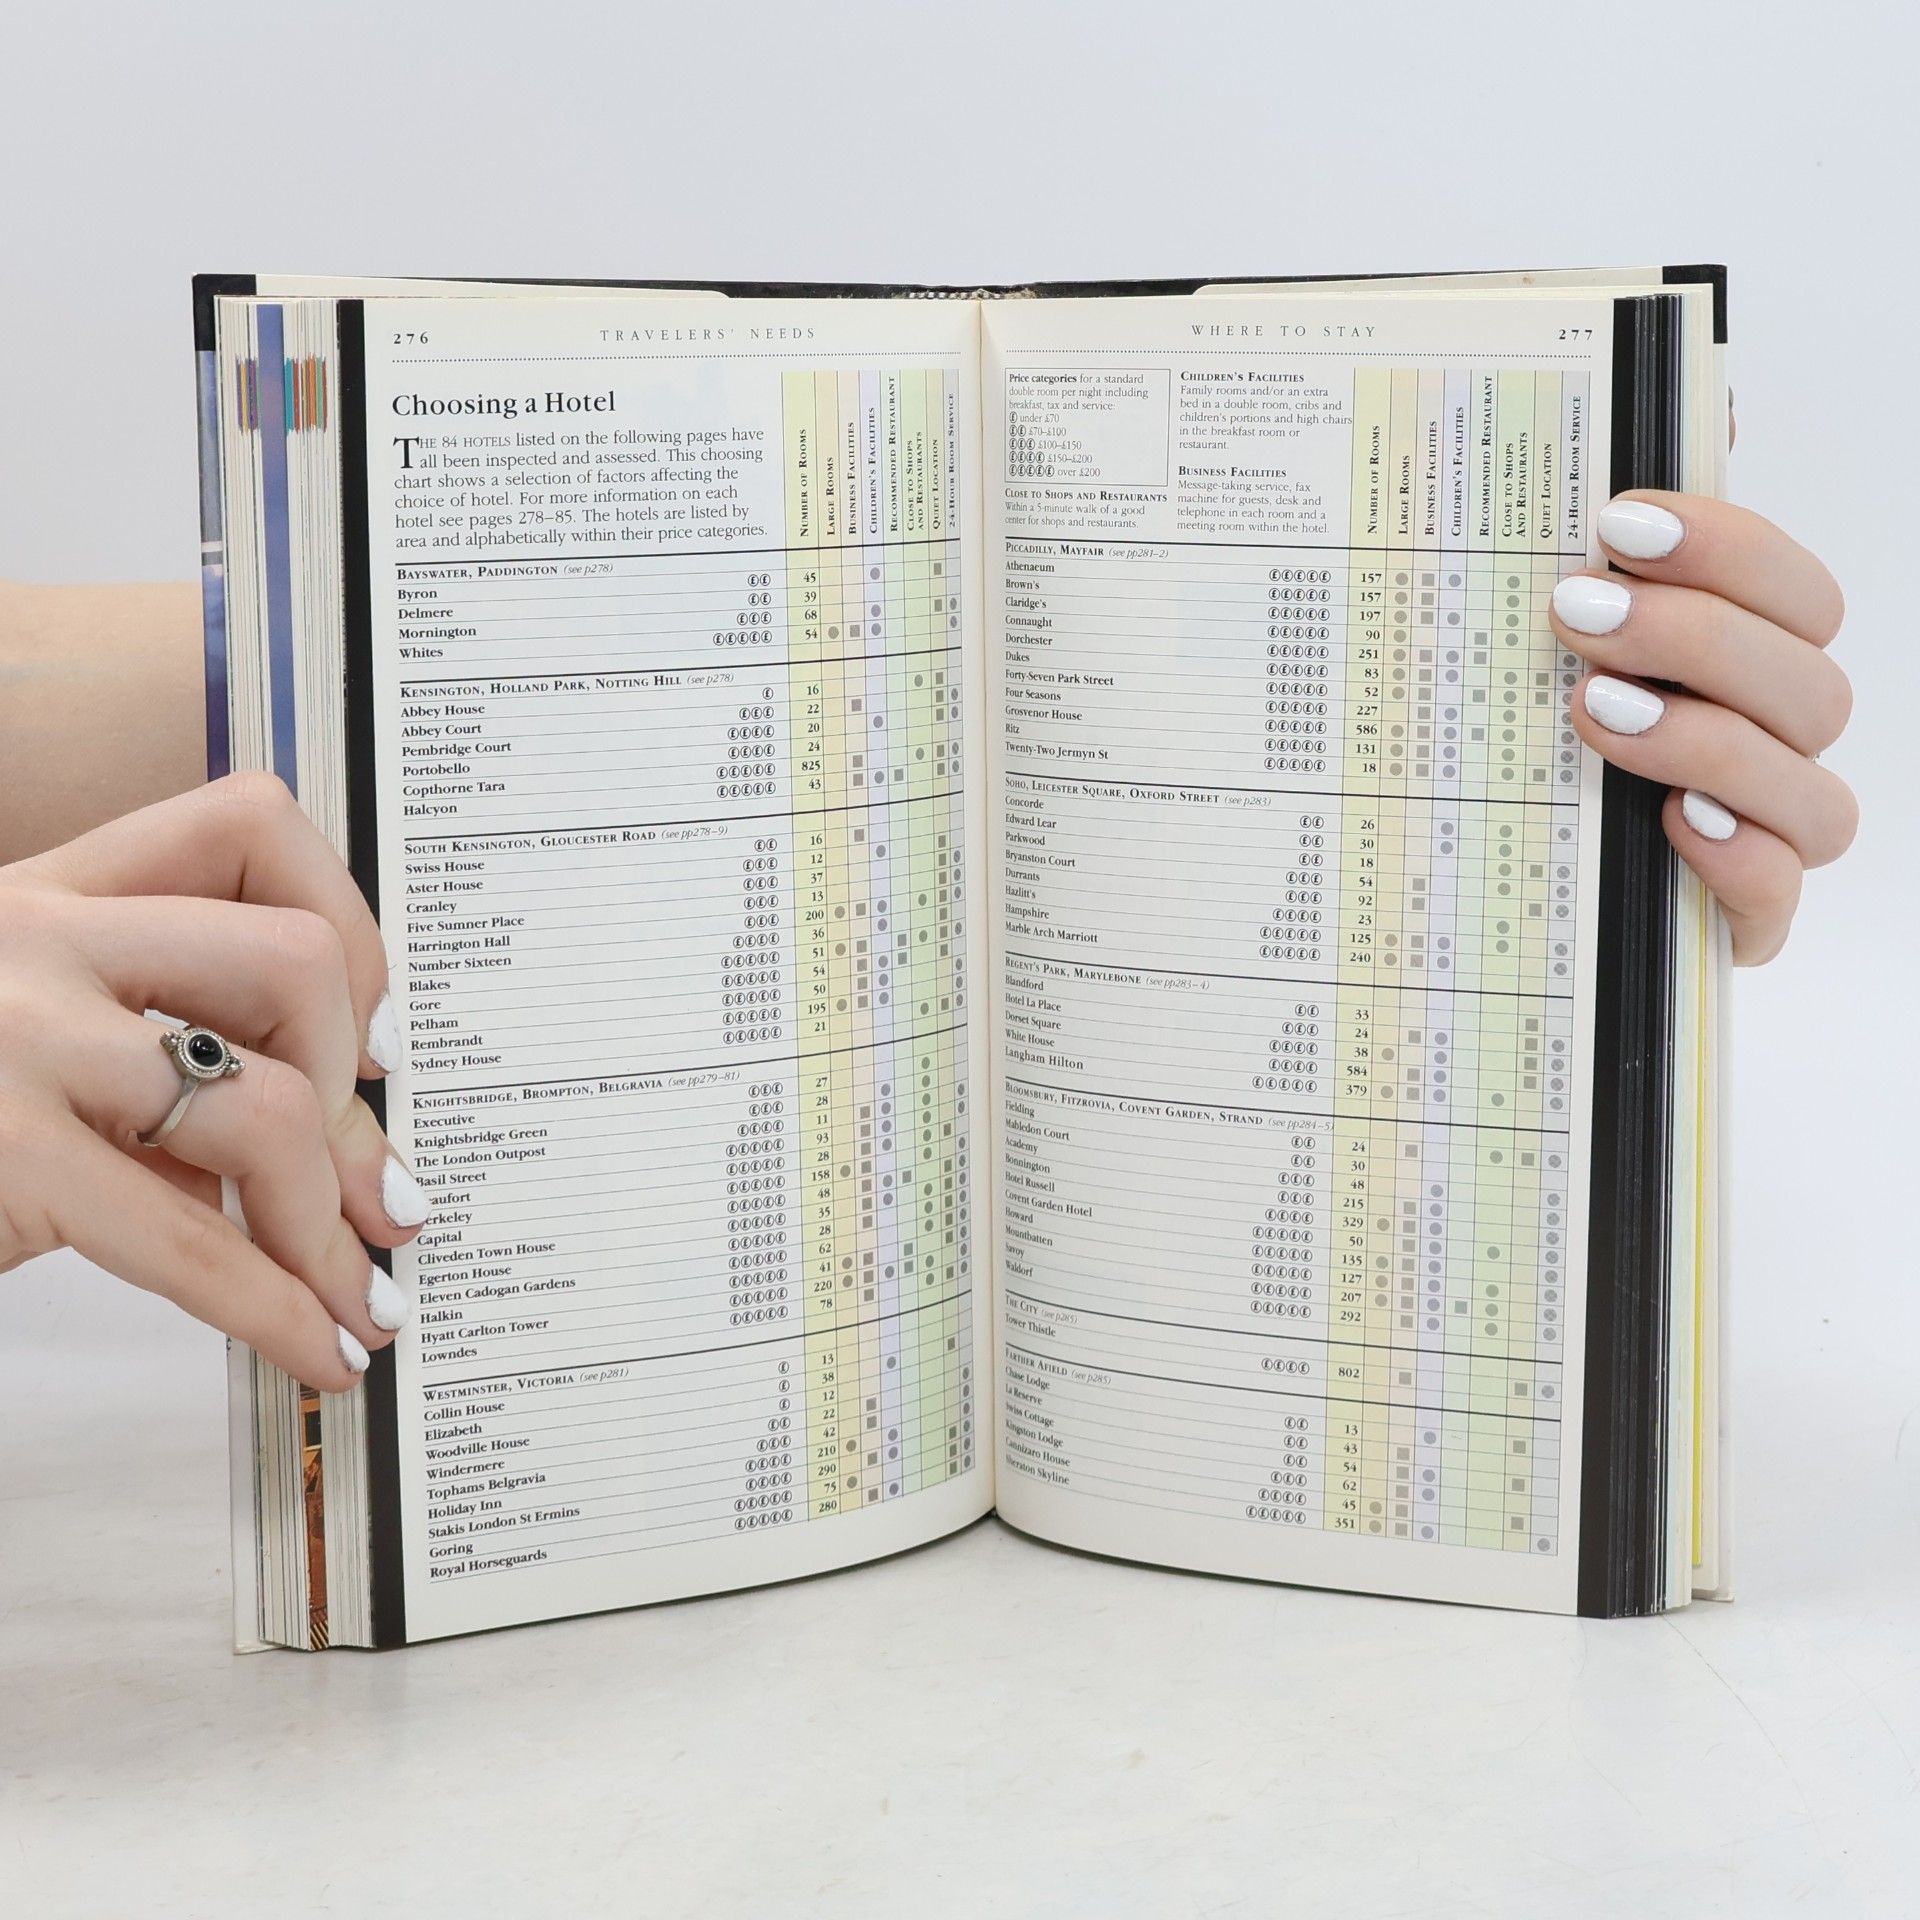 276 TRAVELERS' NEEDS
Choosing a Hotel
THE 84 HOTELS listed on the following pages have
all been inspected and assessed. This choosing
chart shows a selection of factors affecting the
choice of hotel. For more information on each
hotel see pages 278–85. The hotels are listed by
area and alphabetically within their price categories.
NUMBER OF ROOMS
LARGE ROOMS
BUSINESS FACILITIES
CHILDREN'S FACILITIES
RECOMMENDED RESTAURANT
CLOSE TO SHOPS
AND RESTAURANTS
QUIET LOCATION
24-HOUR ROOM SERVICE
BAYSWATER, PADDINGTON (see p278)
Byron ££ 45
Delmere ££ 39
Mornington £££ 68
Whites £££££ 54
KENSINGTON, HOLLAND PARK, NOTTING HILL (see p278)
Abbey House £ 16
Abbey Court £££ 22
Pembridge Court ££££ 20
Portobello ££££ 24
Copthorne Tara £££££ 825
Halcyon £££££ 43
SOUTH KENSINGTON, GLOUCESTER ROAD (see pp278–9)
Swiss House ££ 16
Aster House £££ 12
Cranley £££ 37
Five Sumner Place £££ 13
Harrington Hall £££ 200
Number Sixteen ££££ 36
Blakes £££££ 51
Gore £££££ 54
Pelham £££££ 50
Rembrandt £££££ 195
Sydney House £££££ 21
KNIGHTSBRIDGE, BROMPTON, BELGRAVIA (see pp279–81)
Executive £££ 27
Knightsbridge Green £££ 28
The London Outpost ££££ 11
Basil Street £££££ 93
eaufort £££££ 28
erkeley £££££ 158
Capital £££££ 48
Cliveden Town House £££££ 35
Egerton House £££££ 28
Eleven Cadogan Gardens £££££ 62
Halkin £££££ 41
Hyatt Carlton Tower £££££ 220
Lowndes £££££ 78
WESTMINSTER, VICTORIA (see p281)
Collin House £ 13
Elizabeth £ 38
Woodville House £ 12
Windermere ££ 22
Tophams Belgravia £££ 42
Holiday Inn ££££ 210
Stakis London St Ermins ££££ 290
Goring £££££ 75
Royal Horseguards £££££ 280
WHERE TO STAY 277
Price categories for a standard
double room per night including
breakfast, tax and service:
£ under £70
££ £70–£100
£££ £100–£150
££££ £150–£200
£££££ over £200
CLOSE TO SHOPS AND RESTAURANTS
Within a 5-minute walk of a good
center for shops and restaurants.
CHILDREN'S FACILITIES
Family rooms and/or an extra
bed in a double room, cribs and
children's portions and high chairs
in the breakfast room or
restaurant.
BUSINESS FACILITIES
Message-taking service, fax
machine for guests, desk and
telephone in each room and a
meeting room within the hotel.
NUMBER OF ROOMS
LARGE ROOMS
BUSINESS FACILITIES
CHILDREN'S FACILITIES
RECOMMENDED RESTAURANT
CLOSE TO SHOPS
AND RESTAURANTS
QUIET LOCATION
24-HOUR ROOM SERVICE
PICCADILLY, MAYFAIR (see pp281–2)
Athenaeum £££££ 157
Brown's £££££ 157
Claridge's £££££ 197
Connaught £££££ 90
Dorchester £££££ 251
Dukes £££££ 83
Forty-Seven Park Street £££££ 52
Four Seasons £££££ 227
Grosvenor House £££££ 586
Ritz £££££ 131
Twenty-Two Jermyn St £££££ 18
SOHO, LEICESTER SQUARE, OXFORD STREET (see p283)
Concorde ££ 26
Edward Lear ££ 30
Parkwood ££ 18
Bryanston Court £££ 54
Durrants £££ 92
Hazlitt's ££££ 23
Hampshire £££££ 125
Marble Arch Marriott £££££ 240
REGENT'S PARK, MARYLEBONE (see pp283–4)
Blandford ££ 33
Hotel La Place £££ 24
Dorset Square ££££ 38
White House ££££ 584
Langham Hilton £££££ 379
BLOOMSBURY, FITZROVIA, COVENT GARDEN, STRAND (see pp284–5)
Fielding ££ 24
Mabledon Court ££ 30
Academy £££ 48
Bonnington £££ 215
Hotel Russell ££££ 329
Covent Garden Hotel £££££ 50
Howard £££££ 135
Mountbatten £££££ 127
Savoy £££££ 207
Waldorf £££££ 292
THE CITY (see p285)
Tower Thistle ££££ 802
FARTHER AFIELD (see p285)
Chase Lodge ££ 13
La Reserve ££ 43
Swiss Cottage ££ 54
Kingston Lodge £££ 62
Cannizaro House ££££ 45
Sheraton Skyline £££££ 351